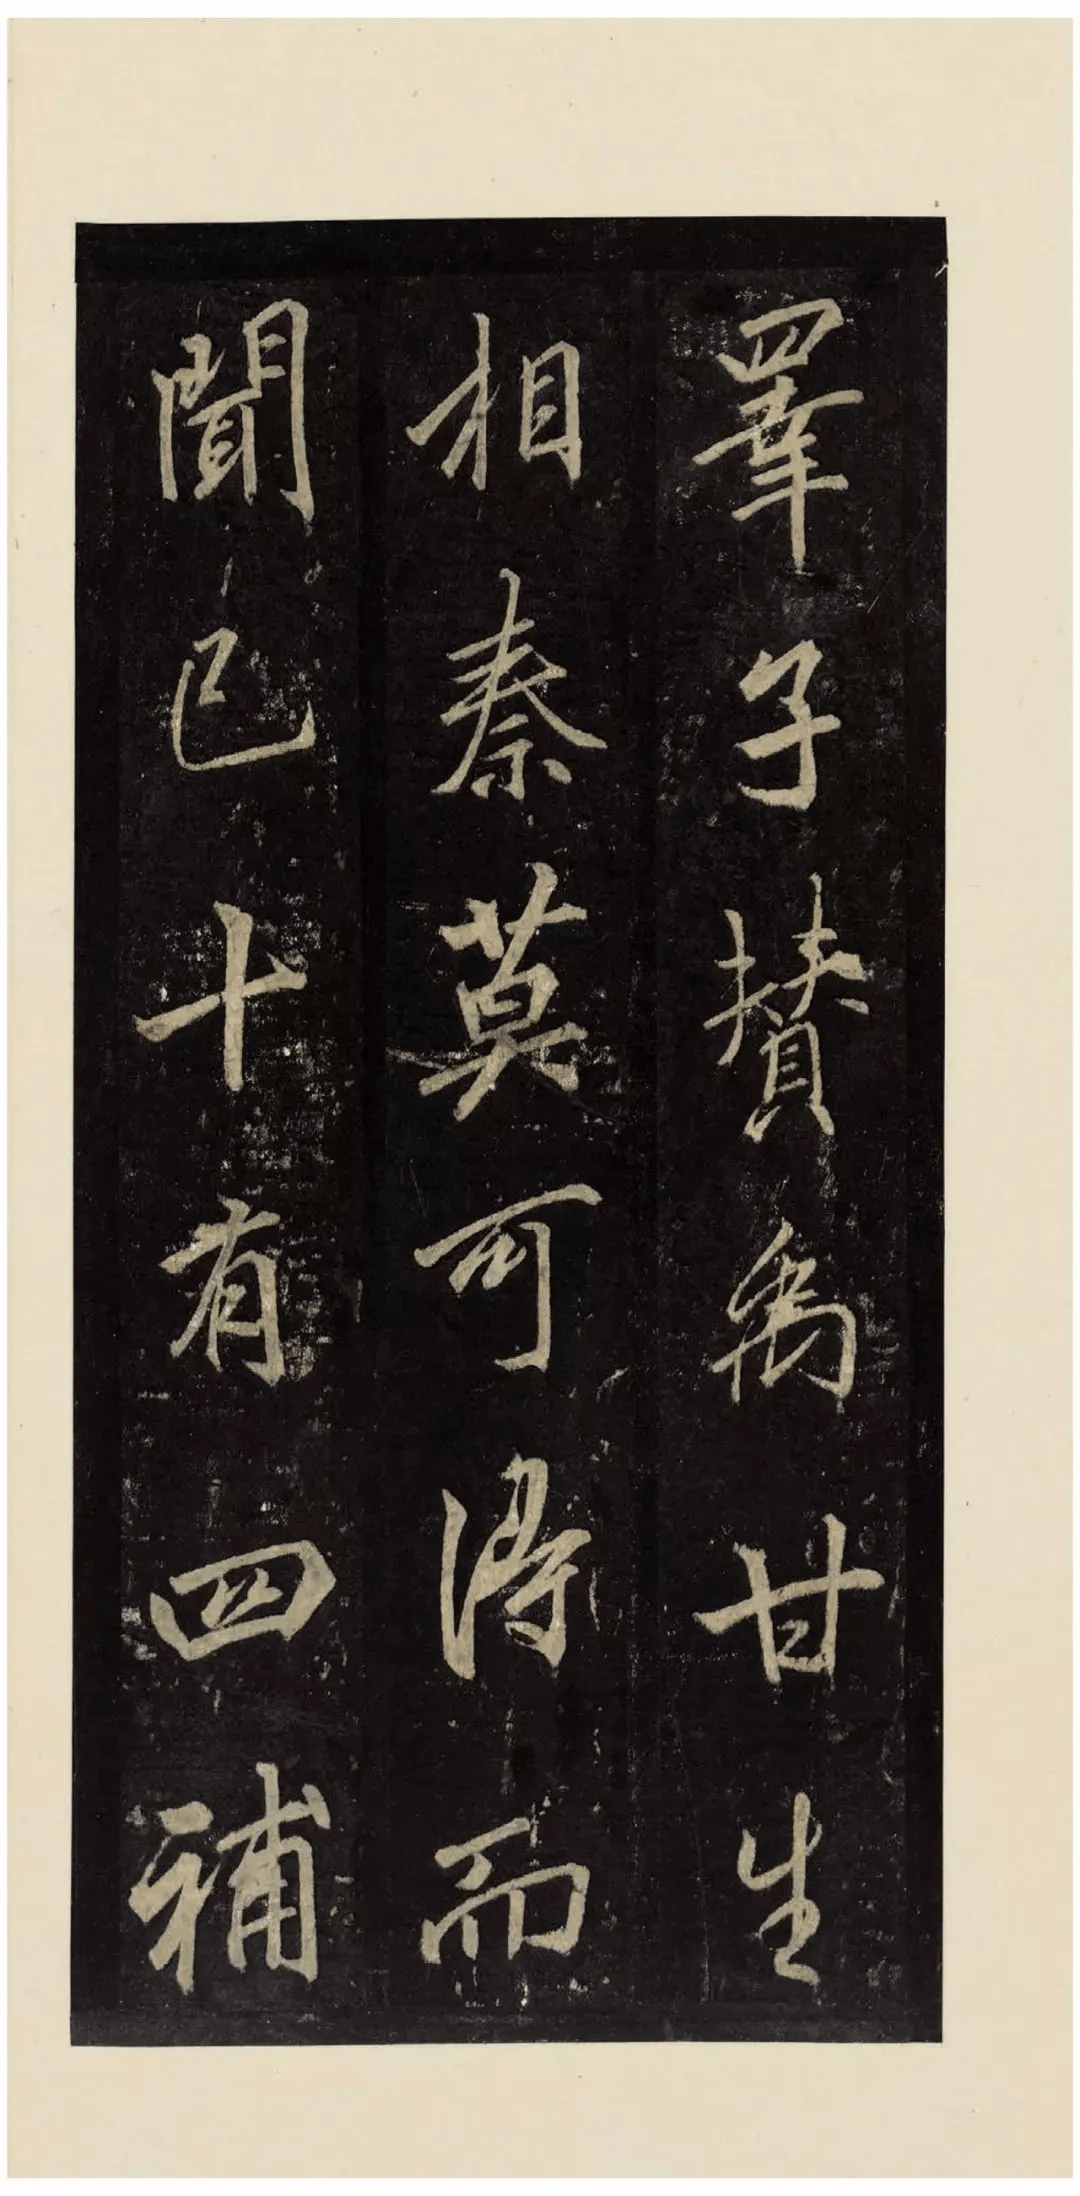 睪子贊禹甘生
相秦莫可得而
聞已十有四補